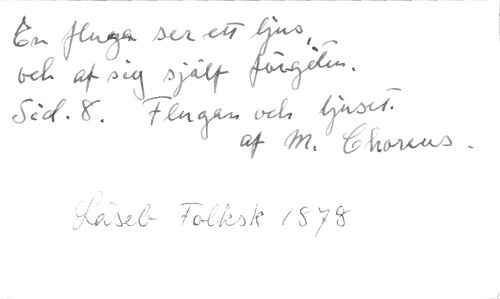 En fluga ser ett ljus,
och af sig sjålf förgäten.
Sid. 8. Flugan och ljuset.
af M. Choræus.
Läseb Folksk 1878